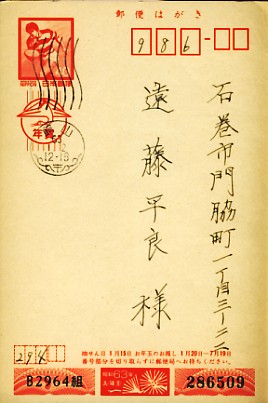 郵便はがき
986
年賀
山
12.18
石巻市門脇町一丁目三ー二二
遠藤平良様
抽せん日1月15日 お年玉のお渡し1月20日ー7月19日
番号部分を切り取らずに郵便局へお持ちください。
296
B2964組
昭和63年
286509